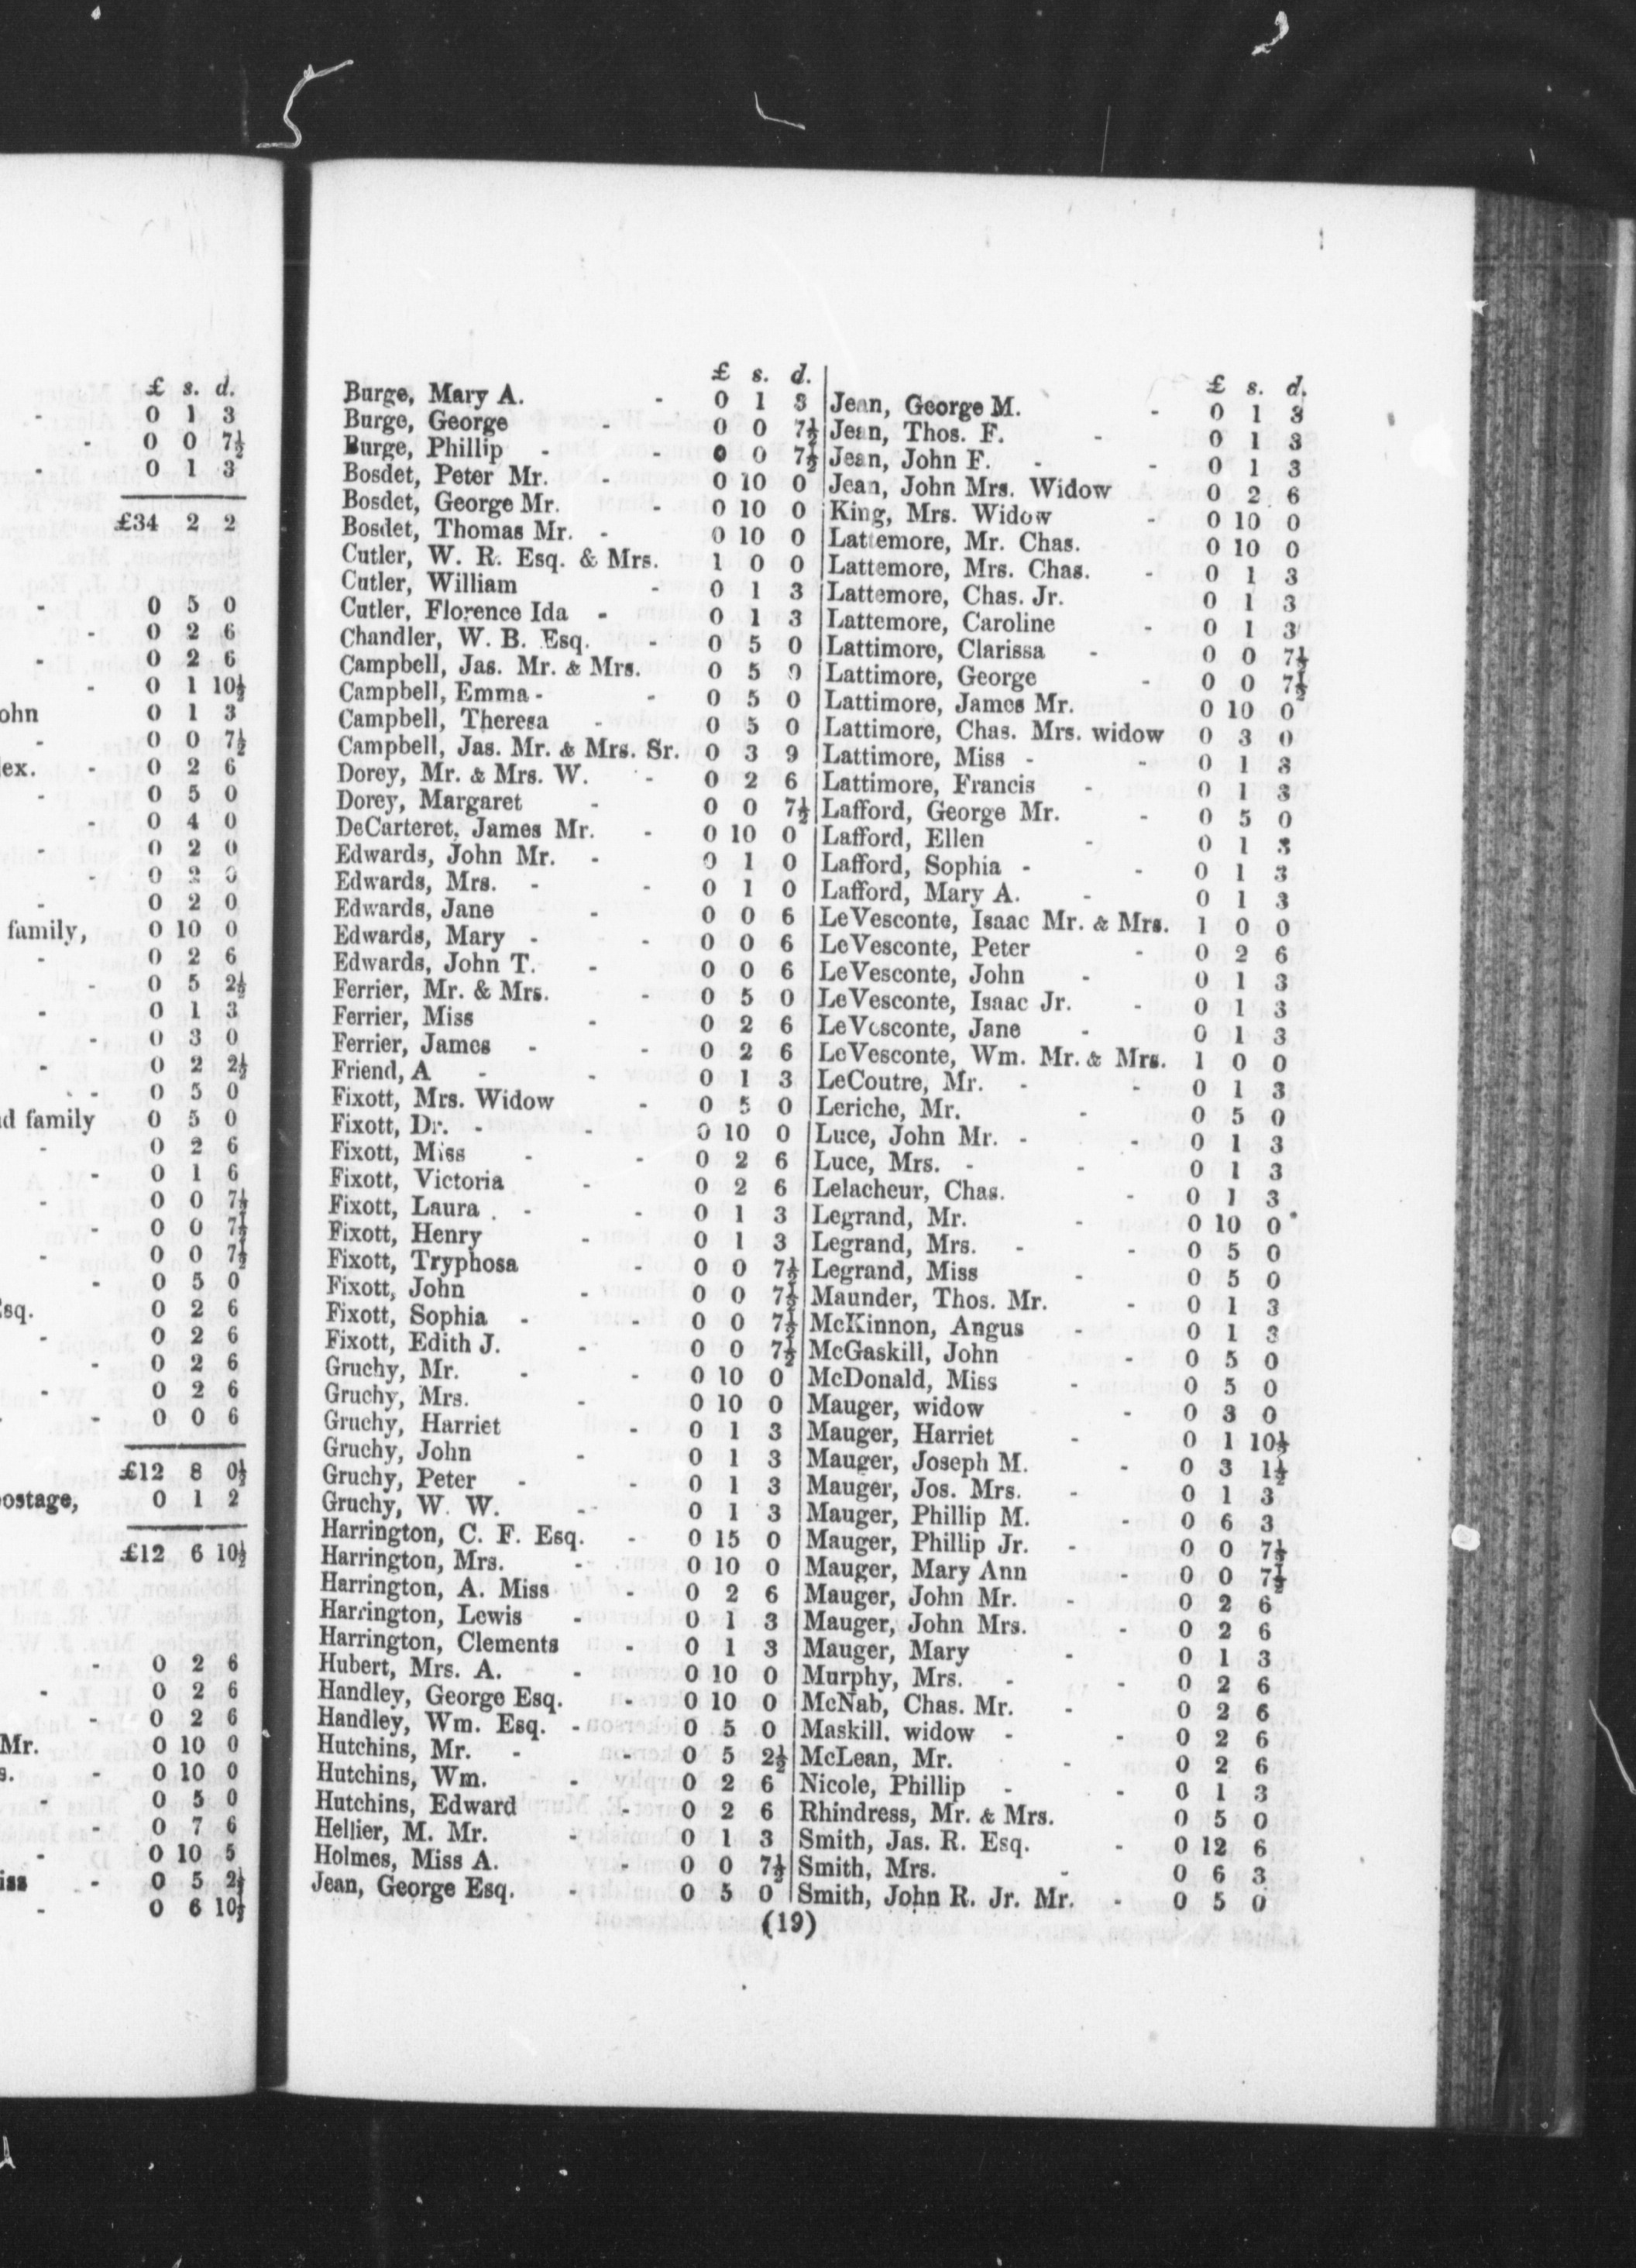 £ s. d.
0 1 3
0 0 7½
0 1 3
£34 2 2
0 5 0
0 2 6
0 2 6
0 1 10½
ohn 0 1 3
0 0 7½
ex. - 0 2 6
0 5 0
0 4 0
0 2 0
0 2 0
0 2 0
family, 0 10 0
0 2 6
0 5 2½
0 1 3
0 3 0
0 2 2½
0 5 0
d family 0 5 0
0 2 6
0 1 6
0 0 7½
0 0 7½
0 0 7½
0 5 0
sq. 0 2 6
0 2 6
0 2 6
0 2 6
0 0 6
£12 8 0½
ostage, 0 1 2
£12 6 10½
0 2 6
0 2 6
0 2 6
Mr. 0 10 0
s. - 0 10 0
0 5 0
0 7 6
0 10 5
iss - 0 5 2½
0 6 10½
£ s. d.
Burge, Mary A. - 0 1 3
Burge, George - 0 0 7½
Burge, Phillip - - 0 0 7½
Bosdet, Peter Mr. - 0 10 0
Bosdet, George Mr. - 0 10 0
Bosdet, Thomas Mr. - 0 10 0
Cutler, W. R. Esq. & Mrs. 1 0 0
Cutler, William - 0 1 3
Cutler, Florence Ida - 0 1 3
Chandler, W. B. Esq. - 0 5 0
Campbell, Jas. Mr. & Mrs. 0 5 0
Campbell, Emma - - 0 5 0
Campbell, Theresa - 0 5 0
Campbell, Jas. Mr. & Mrs. Sr. 0 3 9
Dorey, Mr. & Mrs. W. - 0 2 6
Dorey, Margaret - 0 0 7½
DeCarteret, James Mr. - 0 10 0
Edwards, John Mr. - 0 1 0
Edwards, Mrs. - - 0 1 0
Edwards, Jane - 0 0 6
Edwards, Mary - - 0 0 6
Edwards, John T. - 0 0 6
Ferrier, Mr. & Mrs. - 0 5 0
Ferrier, Miss - 0 2 6
Ferrier, James - - 0 2 6
Friend, A - - 0 1 3
Fixott, Mrs. Widow - 0 5 0
Fixott, Dr. - - 0 10 0
Fixott, Miss - - 0 2 6
Fixott, Victoria - 0 2 6
Fixott, Laura - - 0 1 3
Fixott, Henry - 0 1 3
Fixott, Tryphosa - 0 0 7½
Fixott, John - 0 0 7½
Fixott, Sophia - - 0 0 7½
Fixott, Edith J. - 0 0 7½
Gruchy, Mr. - - 0 10 0
Gruchy, Mrs. - 0 10 0
Gruchy, Harriet - 0 1 3
Gruchy, John - 0 1 3
Gruchy, Peter - - 0 1 3
Gruchy, W. W. - 0 1 3
Harrington, C. F. Esq. - 0 15 0
Harrington, Mrs. - 0 10 0
Harrington, A. Miss - 0 2 6
Harrington, Lewis - 0 1 3
Harrington, Clements - 0 1 3
Hubert, Mrs. A. - - 0 10 0
Handley, George Esq. - 0 10 0
Handley, Wm. Esq. - 0 5 0
Hutchins, Mr. - - 0 5 2½
Hutchins, Wm. - 0 2 6
Hutchins, Edward - 0 2 6
Hellier, M. Mr. - 0 1 3
Holmes, Miss A. - 0 0 7½
Jean, George Esq. - 0 5 0
£ s. d.
Jean, George M. - 0 1 3
Jean, Thos. F. - 0 1 3
Jean, John F. - - 0 1 3
Jean, John Mrs. Widow 0 2 6
King, Mrs. Widow - 0 10 0
Lattemore, Mr. Chas. 0 10 0
Lattemore, Mrs. Chas. - 0 1 3
Lattemore, Chas. Jr. 0 1 3
Lattemore, Caroline - 0 1 3
Lattimore, Clarissa - 0 0 7½
Lattimore, George - 0 0 7½
Lattimore, James Mr. 0 10 0
Lattimore, Chas. Mrs. widow 0 3 0
Lattimore, Miss - - 0 1 3
Lattimore, Francis - 0 1 3
Lafford, George Mr. - 0 5 0
Lafford, Ellen - 0 1 3
Lafford, Sophia - - 0 1 3
Lafford, Mary A. - 0 1 3
LeVesconte, Isaac Mr. & Mrs. 1 0 0
LeVesconte, Peter - 0 2 6
LeVesconte, John - 0 1 3
LeVesconte, Isaac Jr. - 0 1 3
LeVesconte, Jane - 0 1 3
LeVesconte, Wm. Mr. & Mrs. 1 0 0
LeCoutre, Mr. - - 0 1 3
Leriche, Mr. - 0 5 0
Luce, John Mr. - - 0 1 3
Luce, Mrs. - - 0 1 3
Lelacheur, Chas. - 0 1 3
Legrand, Mr. - 0 10 0
Legrand, Mrs. - - 0 5 0
Legrand, Miss - 0 5 0
Maunder, Thos. Mr. - 0 1 3
McKinnon, Angus - 0 1 3
McGaskill, John - 0 5 0
McDonald, Miss - 0 5 0
Mauger, widow - 0 3 0
Mauger, Harriet - 0 1 10½
Mauger, Joseph M. - 0 3 1½
Mauger, Jos. Mrs. - 0 1 3
Mauger, Phillip M. - 0 6 3
Mauger, Phillip Jr. - 0 0 7½
Mauger, Mary Ann - 0 0 7½
Mauger, John Mr. - 0 2 6
Mauger, John Mrs. - 0 2 6
Mauger, Mary - 0 1 3
Murphy, Mrs. - - 0 2 6
McNab, Chas. Mr. - 0 2 6
Maskill, widow - - 0 2 6
McLean, Mr. - 0 2 6
Nicole, Phillip - - 0 1 3
Rhindress, Mr. & Mrs. 0 5 0
Smith, Jas. R. Esq. - 0 12 6
Smith, Mrs. - 0 6 3
Smith, John R. Jr. Mr. - 0 5 0
(19)